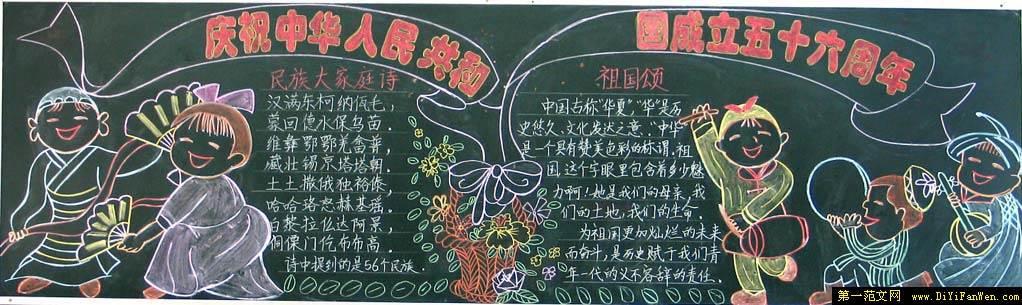 庆祝中华人民共和国成立五十六周年
民族大家庭诗
汉满东柯纳佤毛，
蒙回德水保乌苗.
鄂鄂羌
藏壮锡京塔塔朝.
土土撒俄独裕傣，
哈哈珞怒赫基瑶.
白黎拉仫达阿景，
侗傈门仡布布高.
诗中提到的是56个民族.
祖国颂
中国古称"华夏","华"是历
史悠久、文化发达之意."中华"
是一个具有赞美色彩的称谓.祖
国 这个字眼里包含着多少魅
力啊!她是我们的母亲,我
们的土地,我们的生命.
为祖国更加灿烂的未来
而奋斗,是历史赋于我们青
年一代的义不容辞的责任.
第一范文网 www.DiYiFanWen.com